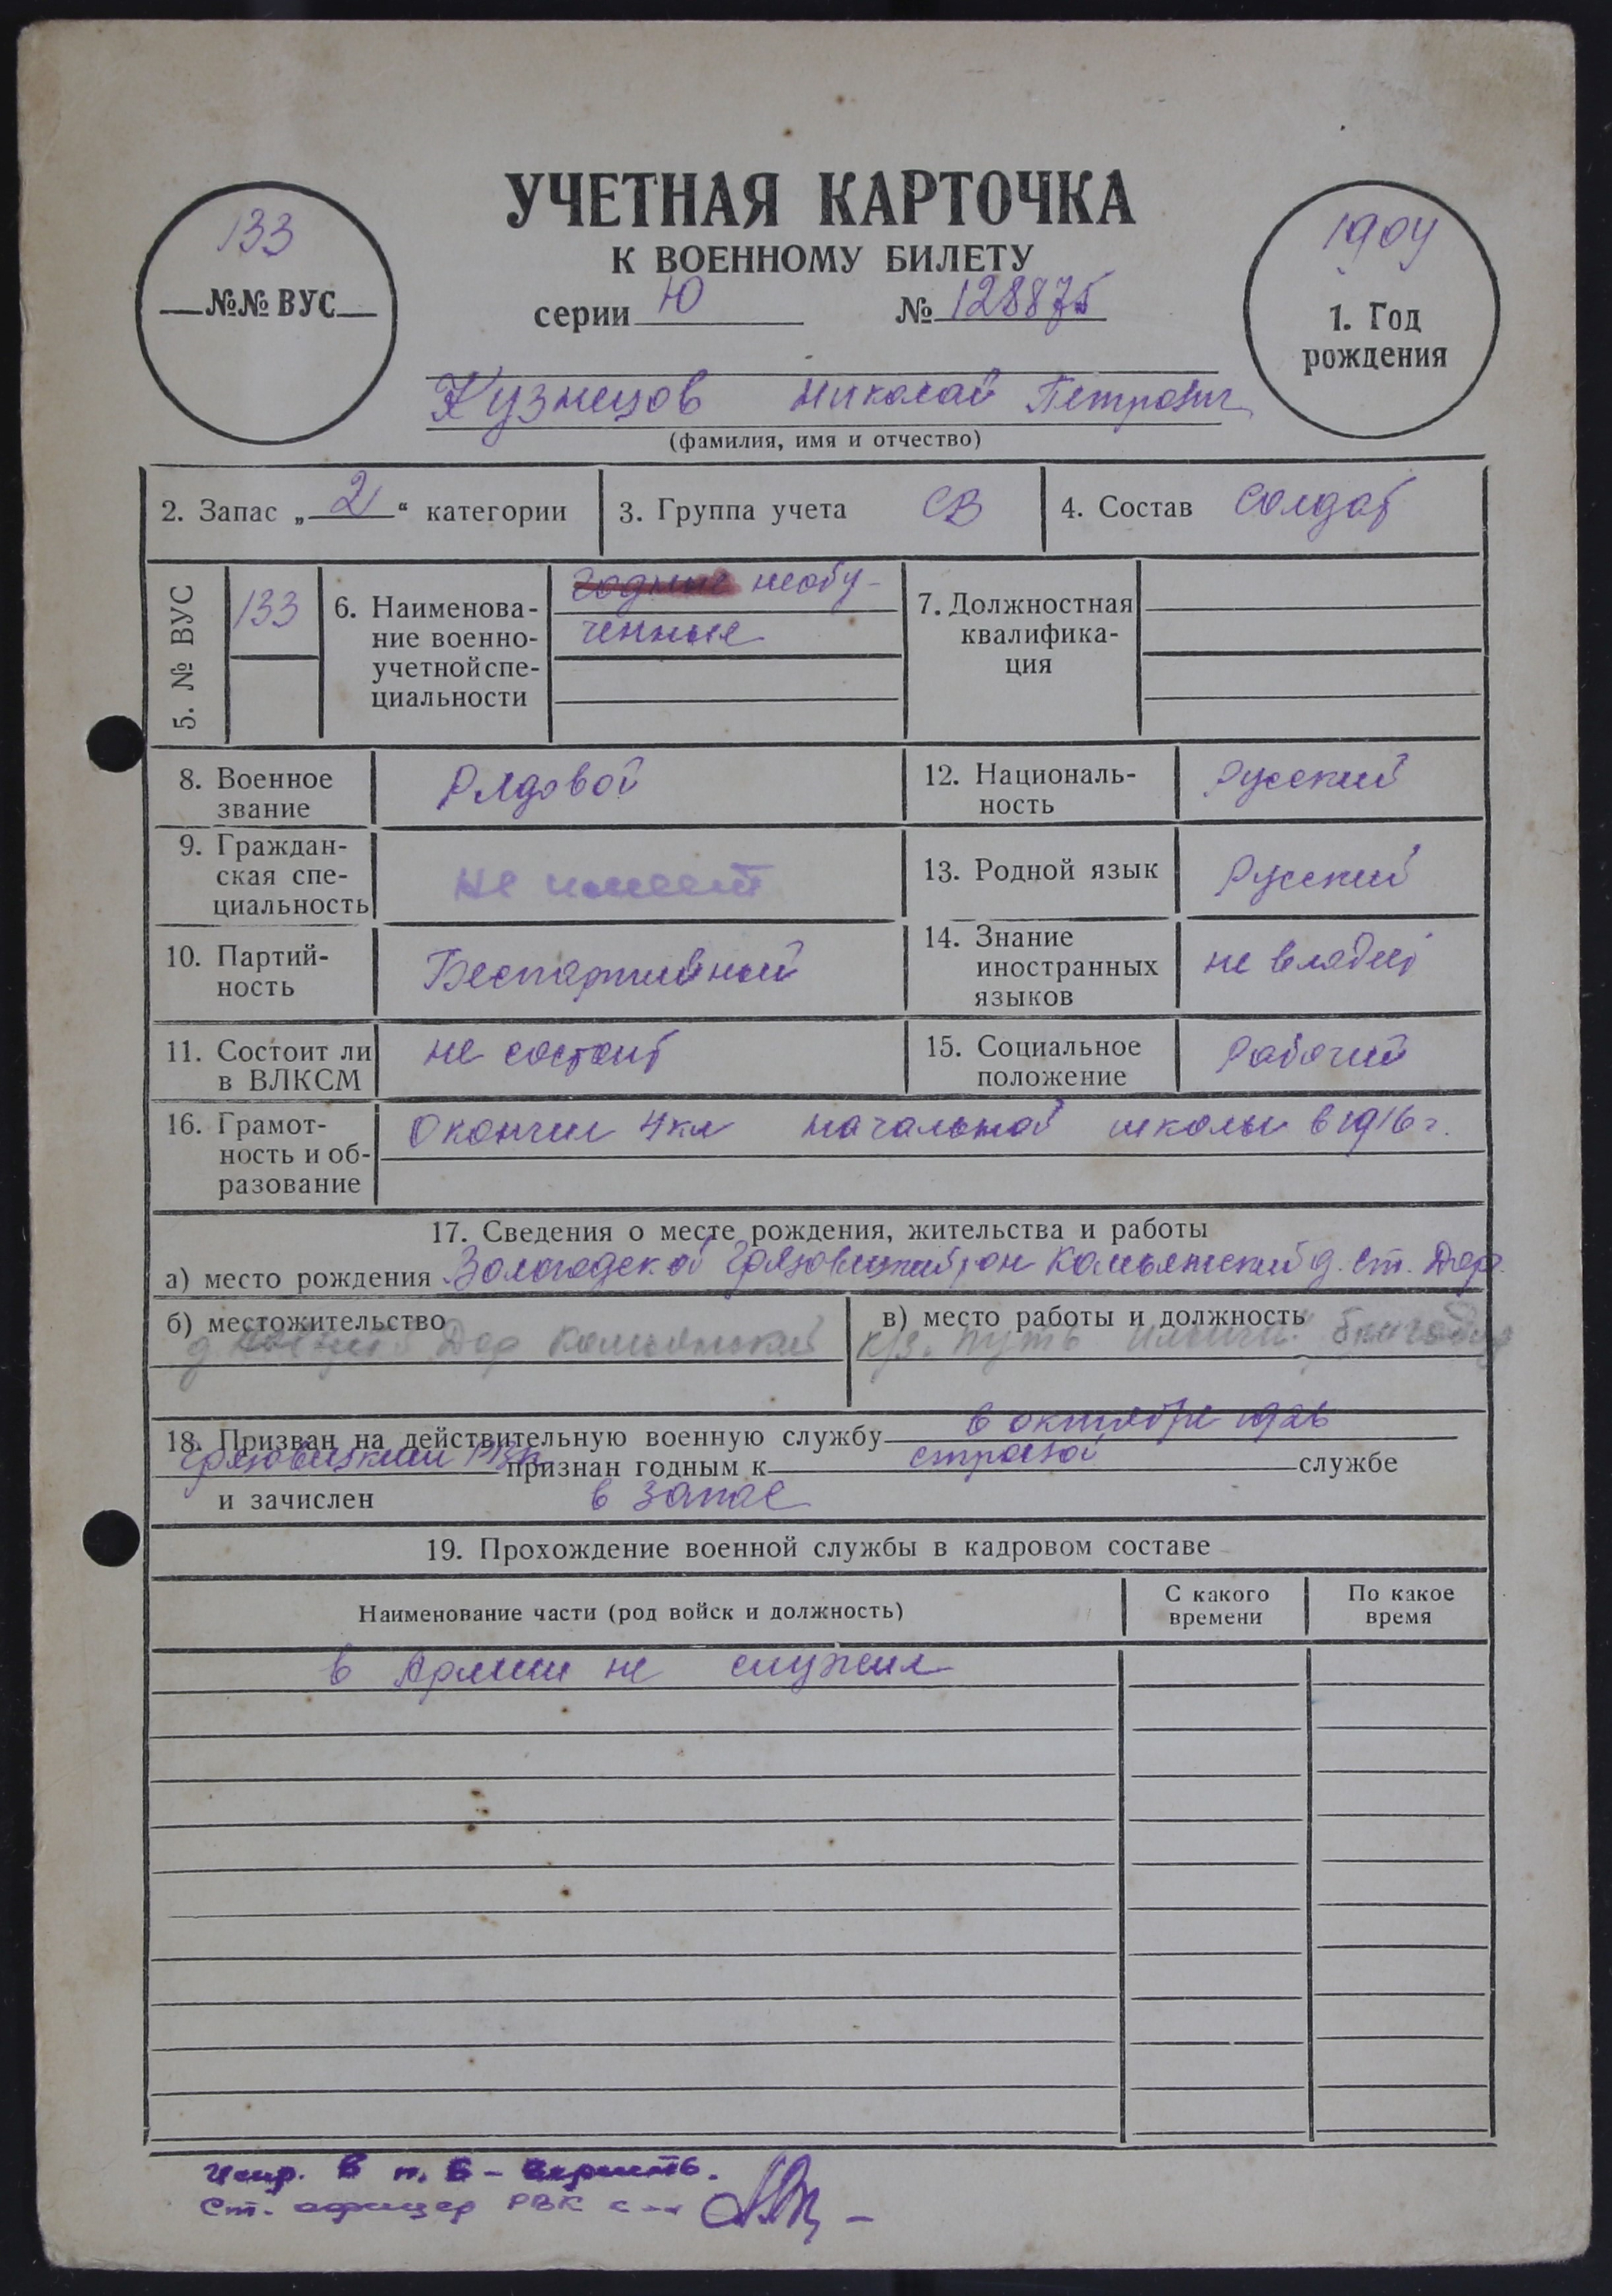 УЧЕТНАЯ КАРТОЧКА
К ВОЕННОМУ БИЛЕТУ
серии Ю № 128875
133
№№ ВУС
1904
1. Год
рождения
Кузнецов Николай Петрович
(фамилия, имя и отчество)
2. Запас „2“ категории
3. Группа учета СВ
4. Состав солдат
5. № ВУС
133
6. Наименова-
ние военно-
учетной спе-
циальности
годные необу-
ченные
7. Должностная
квалифика-
ция
8. Военное
звание
Рядовой
12. Националь-
ность
Русский
9. Граждан-
ская спе-
циальность
не имеет
13. Родной язык
Русский
10. Партий-
ность
Беспартийный
14. Знание
иностранных
языков
не владеет
11. Состоит ли
в ВЛКСМ
не состоит
15. Социальное
положение
Рабочий
16. Грамот-
ность и об-
разование
Окончил 4кл начальной школы в 1916 г.
17. Сведения о месте рождения, жительства и работы
а) место рождения Вологодской Грязовецкий рон Комьянский д. Ст. Дор.
б) местожительство
д. Дор Комьянский
в) место работы и должность
к/з. Путь Ильича бригадир
18. Призван на действительную военную службу в октябре 1926
Грязовецким РВК признан годным к строевой службе
и зачислен в запас
19. Прохождение военной службы в кадровом составе
Наименование части (род войск и должность)
С какого
времени
По какое
время
в Армии не служил
Испр. в п. 6 –
Ст. офицер РВК